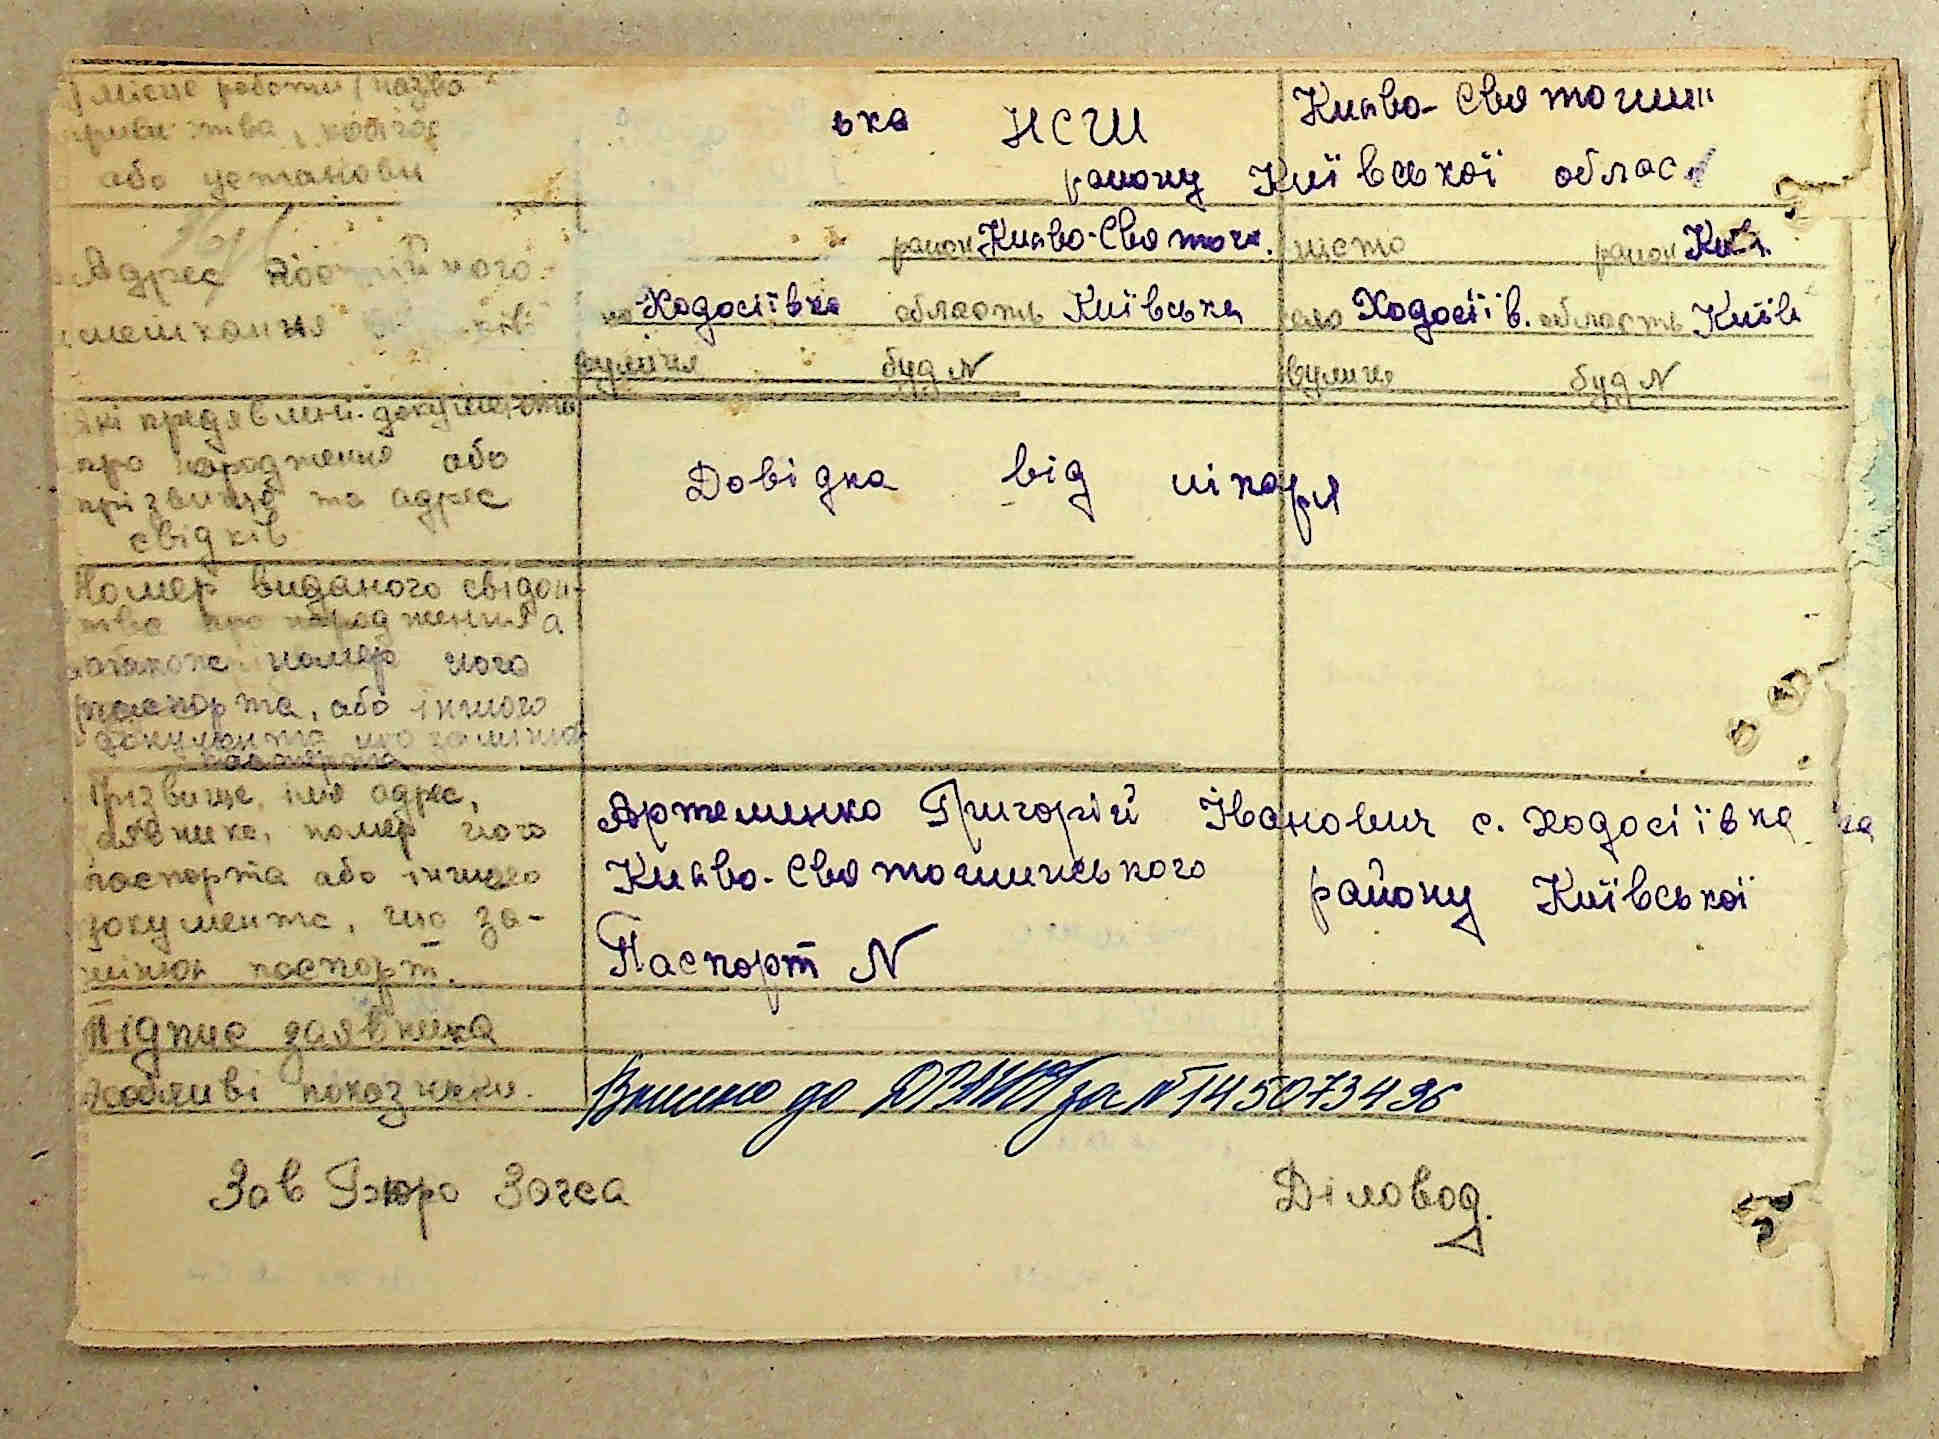 Місце роботи / назва
або установи
ька НСШ Києво-Святошин
району Київської облас
Адрес постійного
мешкання
район Києво-Святош. місто район Києв.
Ходосіївка область Київська село Ходосіїв. область Київ
вулиця буд N вулиця буд N
Які предявлені документи
про народження або
прізвище та адрес
свідків
Довідка від лікаря
Номер виданого свідоц-
тва про народження а
також номер його
паспорта, або іншого
документа що заміняє
паспорта
Прізвище, імя адрес,
заявника, номер його
паспорта або іншого
документа, що за-
міняє паспорт.
Артеменко Григорій Іванович с. Ходосіївка
Києво-Святошинського району Київської
Паспорт N
Підпис заявника
Особливі показники.
Внесено до ДРАЦСГ за №145073436
Зав Бюро Загса Діловод.